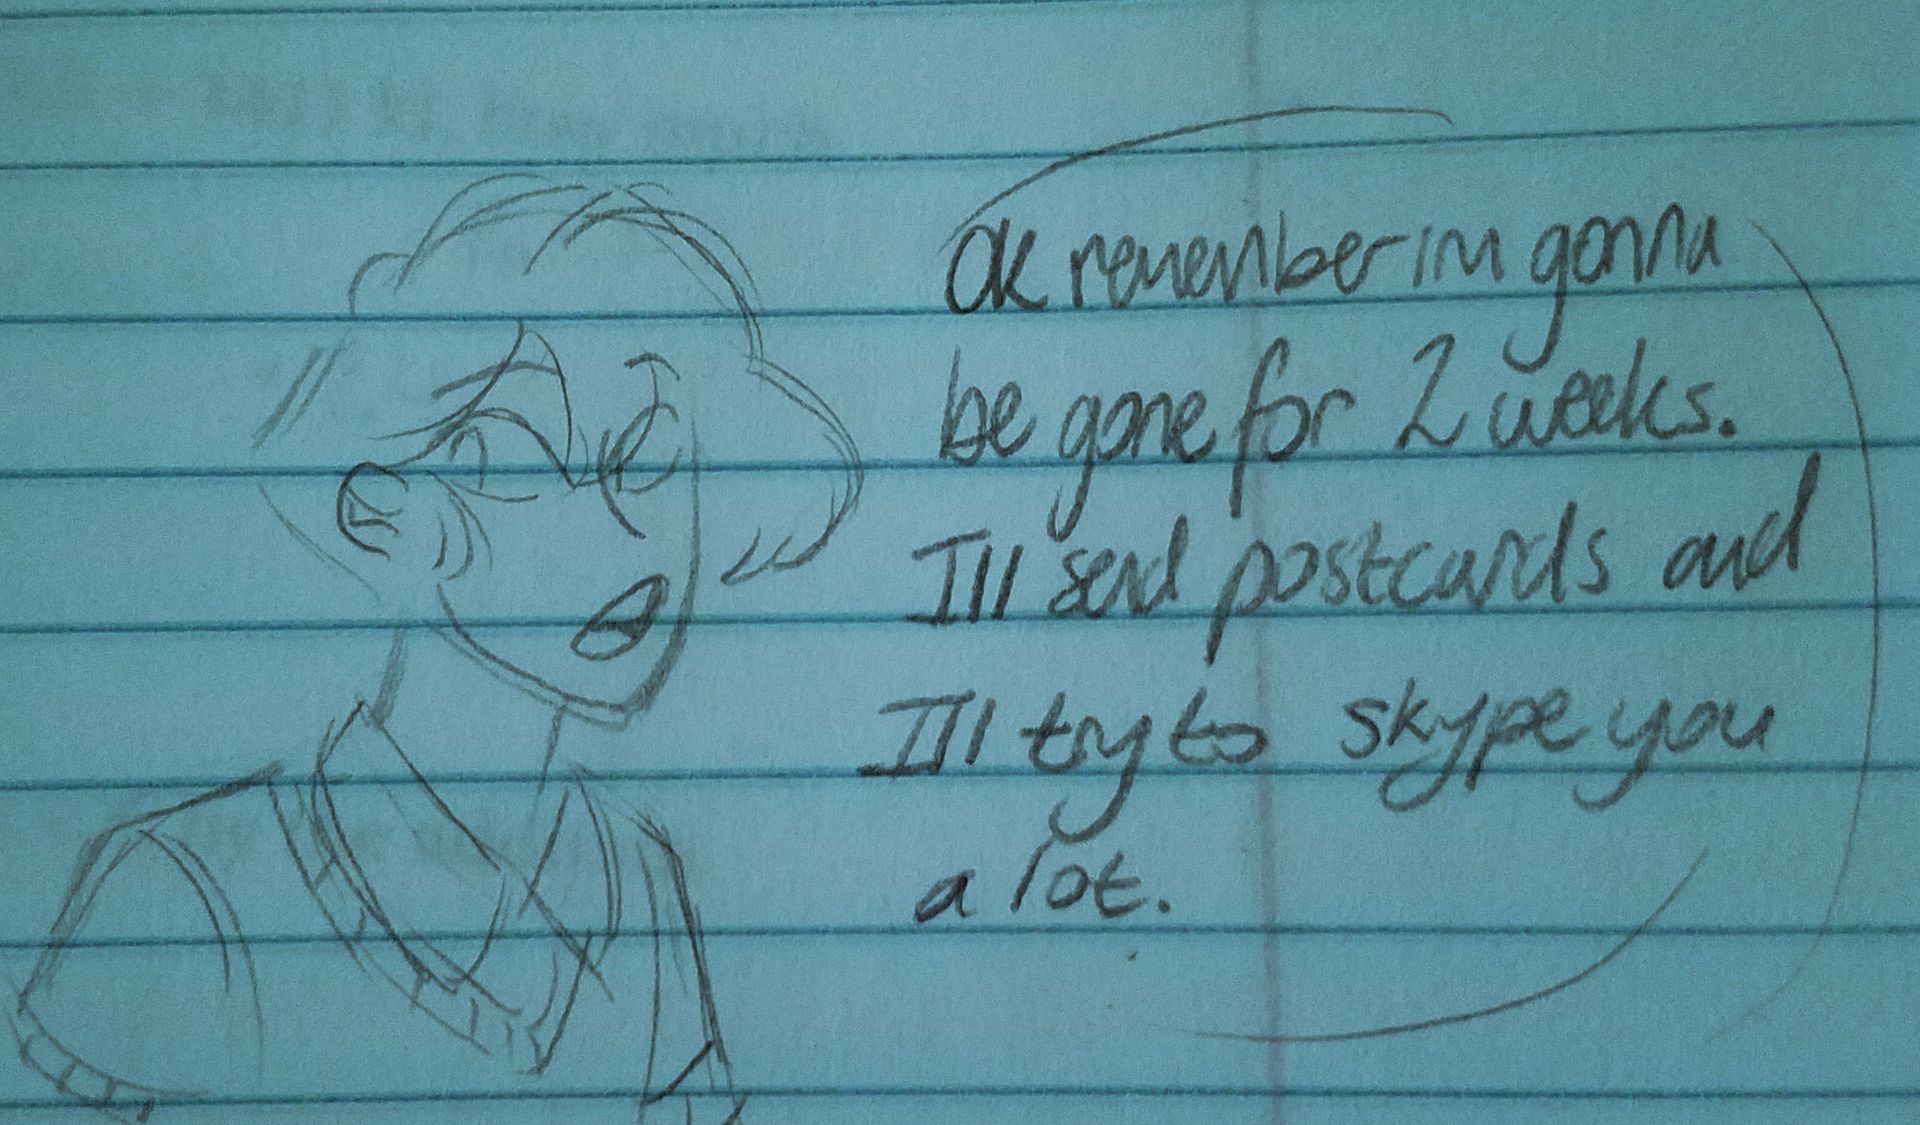 Ok remember im gonna
be gone for 2 weeks.
Ill send postcards and
Ill try to skype you
a lot.